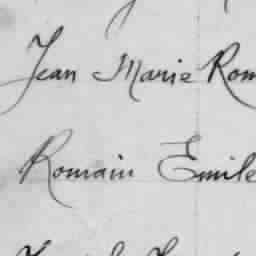 Jean Marie Rom
Romain Emile